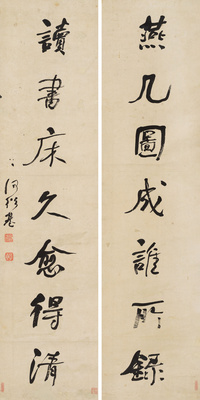 燕几圖成誰所錄
讀書床久愈得清
何紹基